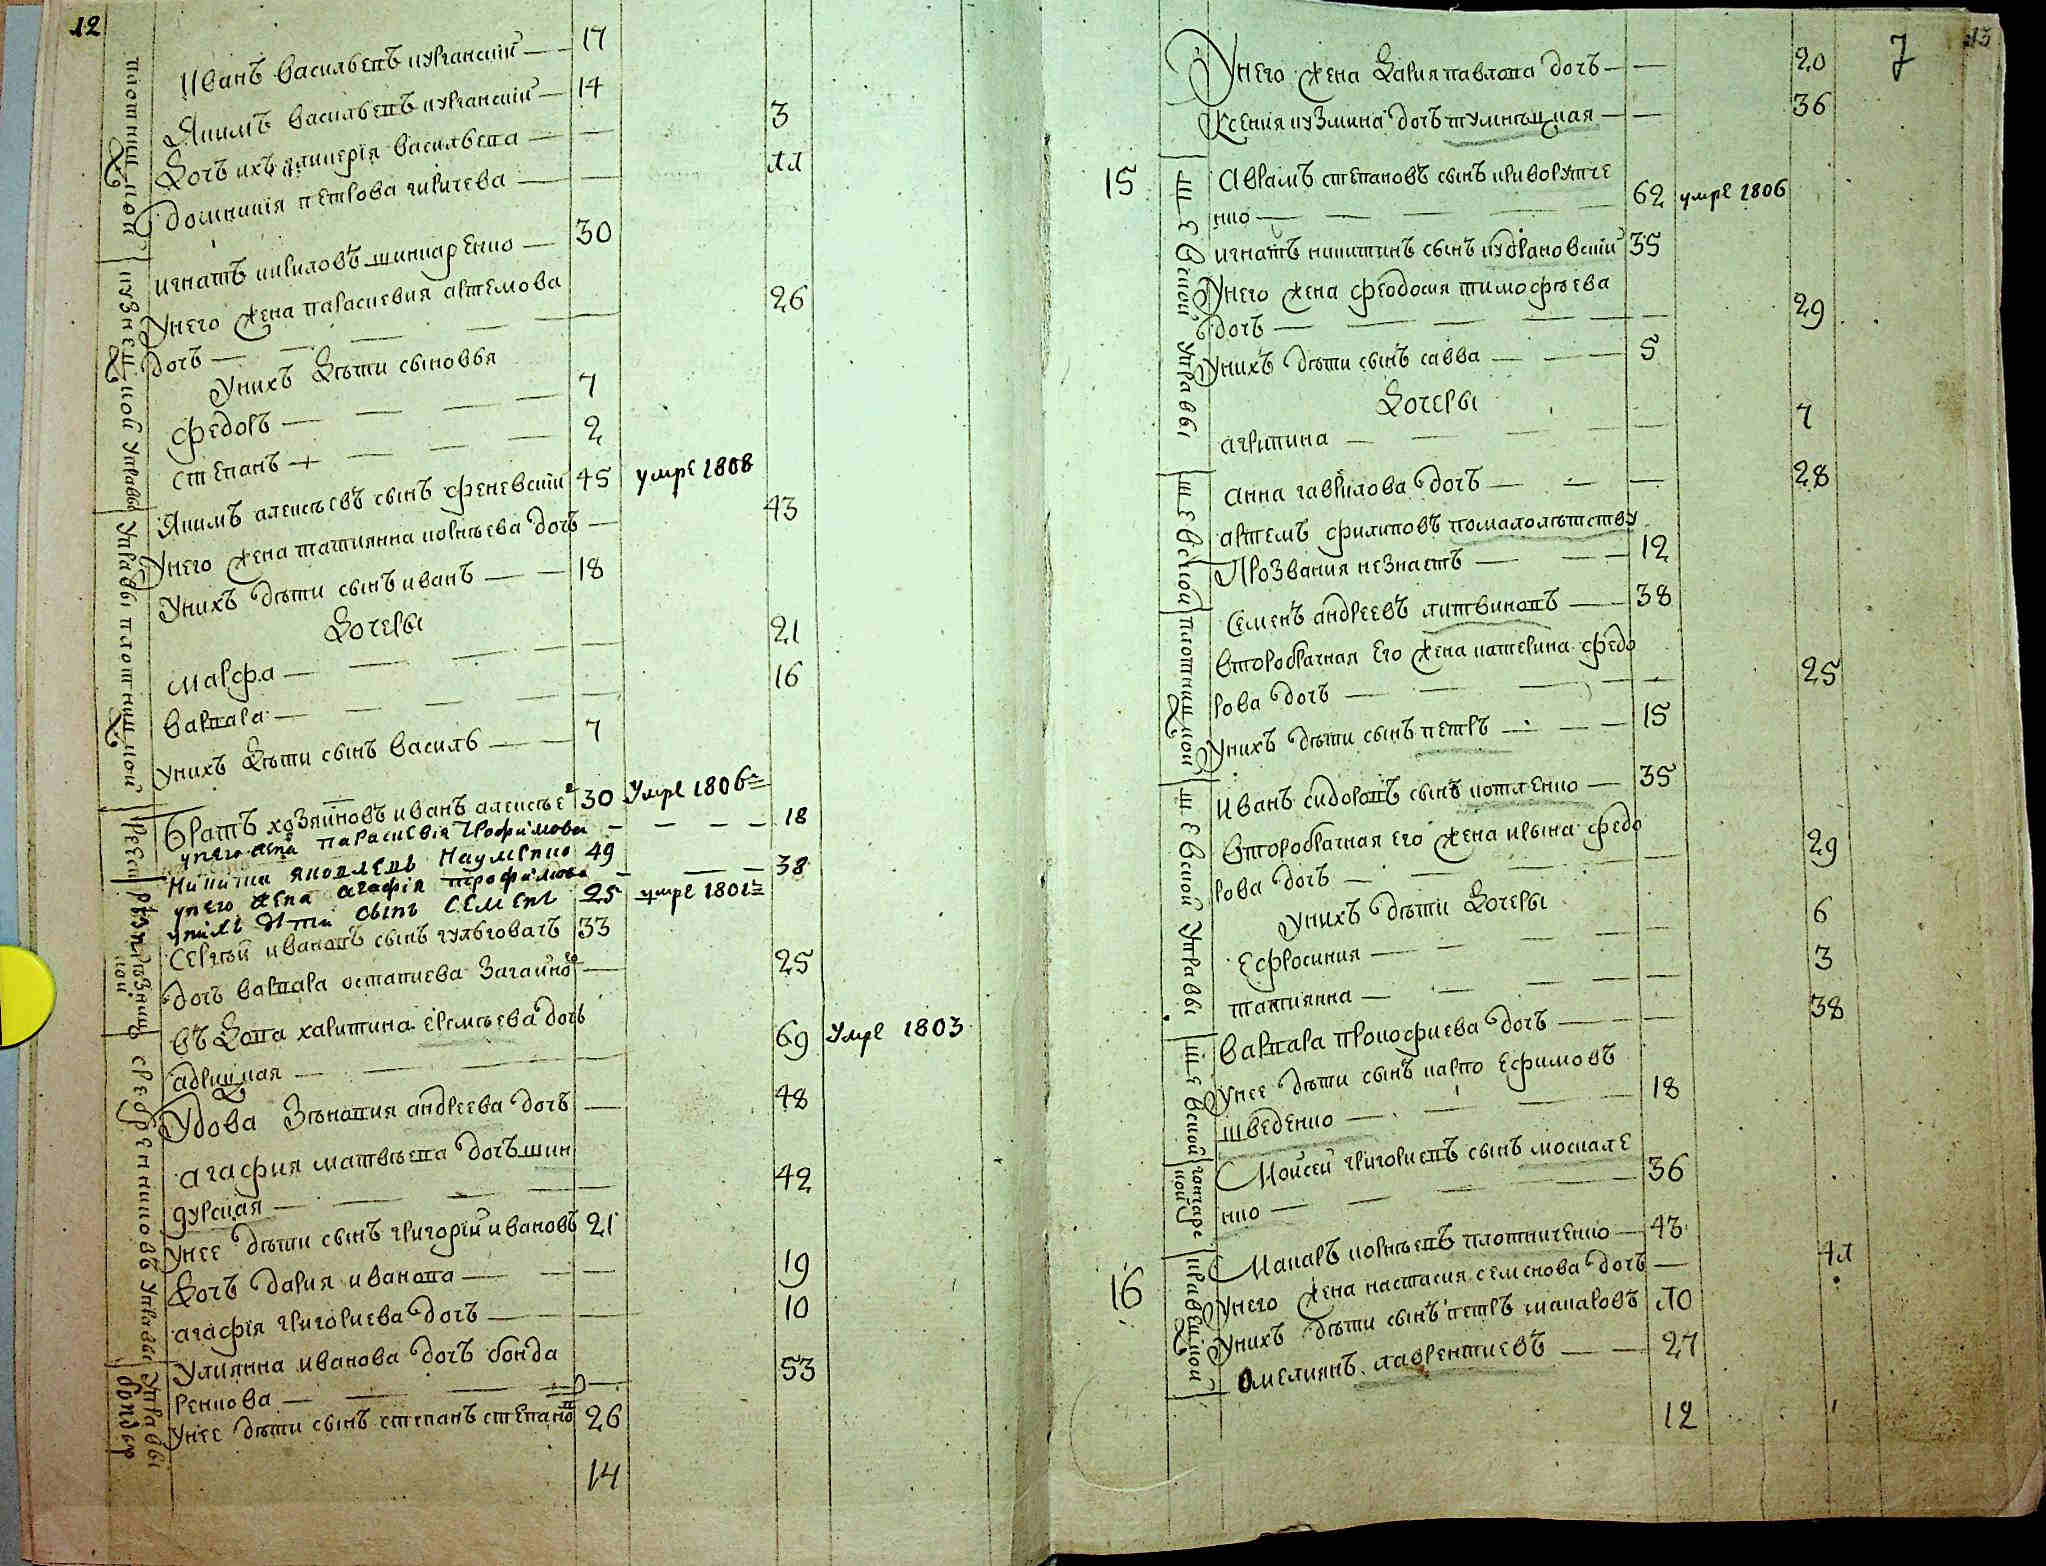 12
Иванъ васильевъ курганскiй — 17
Якимъ васильевъ курганскiй — 14
Дочъ ихъ гликерiя васильева — — 3
домникiя петрова гиричева — —
игнатъ кириловъ шинкаренко — 30
Унего жена параскевия артемова
дочъ — — — — 26
Унихъ Дѣти сыновья
федоръ — — — — 7
степанъ — — — — 2
Якимъ алексѣевъ сынъ феневскiй 45 умре 1808
Унего жена татиянна корнѣева дочъ — 43
Унихъ дѣти сынъ иванъ — — 18
Дочеры
марфа — — — — 21
варвара — — — — 16
унихъ Дѣти сынъ василь — — 7
братъ хозяйновъ иванъ алексѣе 30 Умре 1806
унего жена параскевiя трофимова — — — 18
Никита яковлевъ Науменко 49
унего жена агафiя трофимова — — 38
унихъ дѣти сынъ семенъ 25 умре 1801
Сергѣй ивановъ сынъ гульговатъ 33
дочъ варвара остапиева Загайно — 25
въ Дова харитина еремѣева дочъ
— — — — 69 Умре 1803
Удова Зѣновия андреева дочъ — 48
агафия матвѣева дочъ шин
дурская — — — — 42
Унее дѣти сынъ григорiй ивановъ 21
Дочъ дария иванова — — — 19
агафiя григориева дочъ — — 10
Улиянна иванова дочъ бонда
ренкова — — — — 53
Унее дѣти сынъ степанъ степано 26
14
плотницкой
кузнецкой Управы
Управы плотницкой
Реест
рѣзницкой
сребренниковъ Управы
Управы бондер
13
7
Унего жена Дария павлова дочъ — — 20
Ксения кузмина дочъ тумнѣцкая — — 36
15
Аврамъ степановъ сынъ криворутче
нко — — — — 62 умре 1806
игнатъ никитинъ сынъ кудрановскiй 35
Унего жена феодосия тимофѣева
дочъ — — — — — 29
Унихъ дѣти сынъ савва — — — 5
Дочеры
агрипина — — — — — 7
анна гаврилова дочъ — — — 28
артемъ филиповъ помалолѣтству
Прозвания незнаетъ — — — 12
Семенъ андреевъ литвиновъ — 38
второбрачная Его жена катерина федо
рова дочъ — — — — 25
Унихъ дѣти сынъ петръ — — — 15
Иванъ сидоровъ сынъ котленко — 35
второбрачная его жена ирына федо
рова дочъ — — — — 29
Унихъ дѣти Дочеры
Ефросиния — — — — 6
татиянна — — — — 3
варвара прокофиева дочъ — — 38
Унее дѣти сынъ карпо Ефимовъ
шведенко — — — 18
Моисей григориевъ сынъ москале
нко — — — — 36
16
Макаръ корнѣевъ плотниченко — 43
Унего жена настасия семенова дочъ —
Унихъ дѣти сынъ петръ макаровъ
Омелиянъ лаврентиевъ — — 27
12
шевской Управы
шевской
плотницкой
шевской Управы
шевской
гончарской
кравецкой